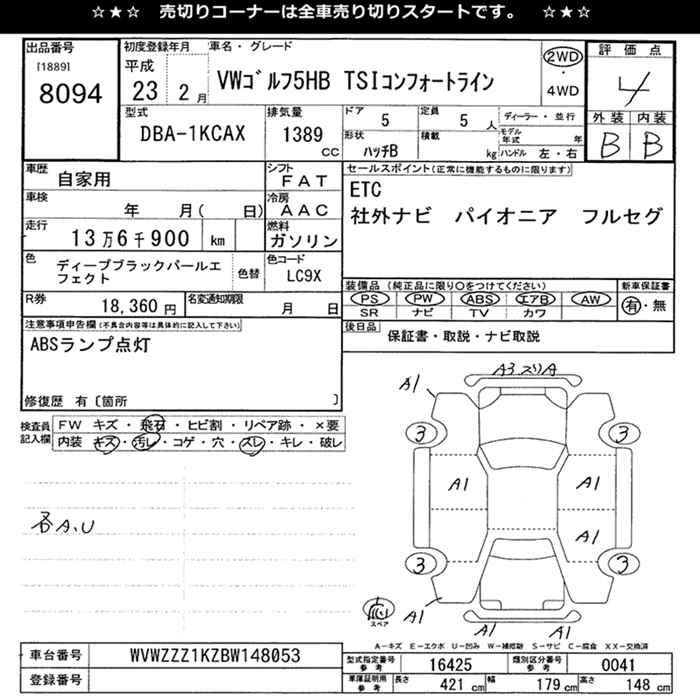 ☆★☆ 売切りコーナーは全車売り切りスタートです。 ☆★☆
出品番号 初度登録年月 車名・グレード 評価点
[1889]
8094
平成 23 2月
VWゴルフ5HB TSIコンフォートライン
2WD ・ 4WD
4
型式 排気量 ドア 定員 ディーラー・並行 外装 内装
DBA-1KCAX 1389 CC 5 5 人
形状 積載 モデル年式 年
ハッチB kg ハンドル 左・右
B B
車歴 自家用 シフト FAT
セールスポイント(正常に機能するものに限ります)
車検 年 月( 日) 冷房 AAC
ETC
社外ナビ パイオニア フルセグ
走行 13万6千900 km 燃料 ガソリン
色 ディープブラックパールエフェクト 色替 色コード LC9X
装備品(純正品に限り○をつけてください) 新車保証書
PS PW ABS エアB AW 有・無
SR ナビ TV カワ
R券 18,360 円 名変通知期限 月 日
後日品 保証書・取説・ナビ取説
注意事項申告欄(不具合内容等は具体的に記入して下さい)
ABSランプ点灯
修復歴 有〔箇所 〕
検査員記入欄 FW キズ・飛石・ヒビ割・リペア跡・×要
内装 キズ・汚レ・コゲ・穴・スレ・キレ・破レ
各A、U
A3 スリA
A1
3 3
A1 A1
A1
3 3
A1 A1
スペア
A-キズ E-エクボ U-凹み W-補修跡 S-サビ C-腐食 XX-交換済
車台番号 WVWZZZ1KZBW148053
型式指定番号 参考 16425 類別区分番号 参考 0041
登録番号
車庫証明用 参考 長さ 421 cm 幅 179 cm 高さ 148 cm